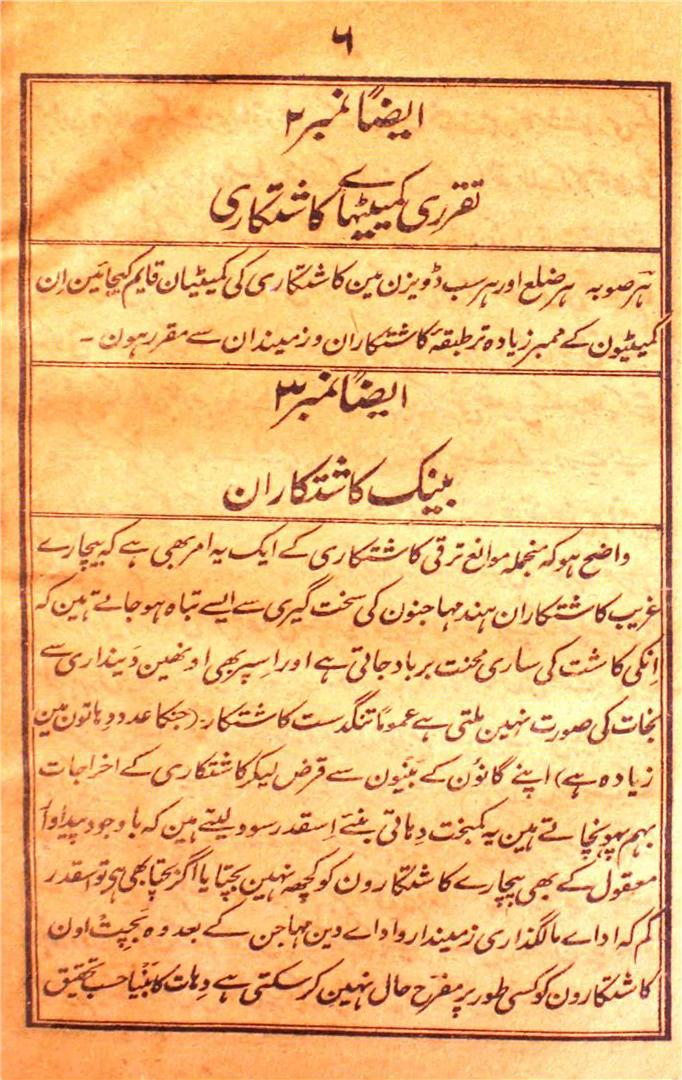 ۶
ایضاً نمبر ۲
تقرری کمیٹیہاے کاشتکاری
ہر صوبہ ہر ضلع اور ہر سب ڈویزن مین کاشتکاری کی کمیٹیان قایم کیجائین اِن
کمیٹیون کے ممبر زیادہ تر طبقۂ کاشتکاران و زمیندان سے مقرر ہون ۔
ایضاً نمبر ۳
بینک کاشتکاران
واضح ہو کہ منجملہ موانع ترقی کاشتکاری کے ایک یہ امر بھی ہے کہ بیچارے
غریب کاشتکاران ہند مہاجنون کی سخت گیری سے ایسے تباہ ہو جاتے ہین کہ
اِنکی کاشت کی ساری محنت برباد جاتی ہے اور اسپر بھی اونھین دَینداری سے
نجات کی صورت نہین ملتی ہے عموماً تنگدست کاشتکار (جنکا عدد دِہاتون مین
زیادہ ہے) اپنے گانوُن کے بَنیون سے قرض لیکر کاشتکاری کے اخراجات
بہم پہونچاتے ہین یہ کمبخت دِہاتی بنئے اِسقدر سود لیتے ہین کہ باوجود پیداوار
معقول کے بھی بیچارے کاشتکارون کو کچھ نہین بچتا یا اگر بچتا بھی ہی تو اسقدر
کم کہ اداے مالگذاری زمیندار و اداے دین مہاجن کے بعد وہ بَچَت اون
کاشتکارون کو کسی طور پر مفرّح حال نہین کر سکتی ہے دِہات کا بَنْیا حسب تحقیق